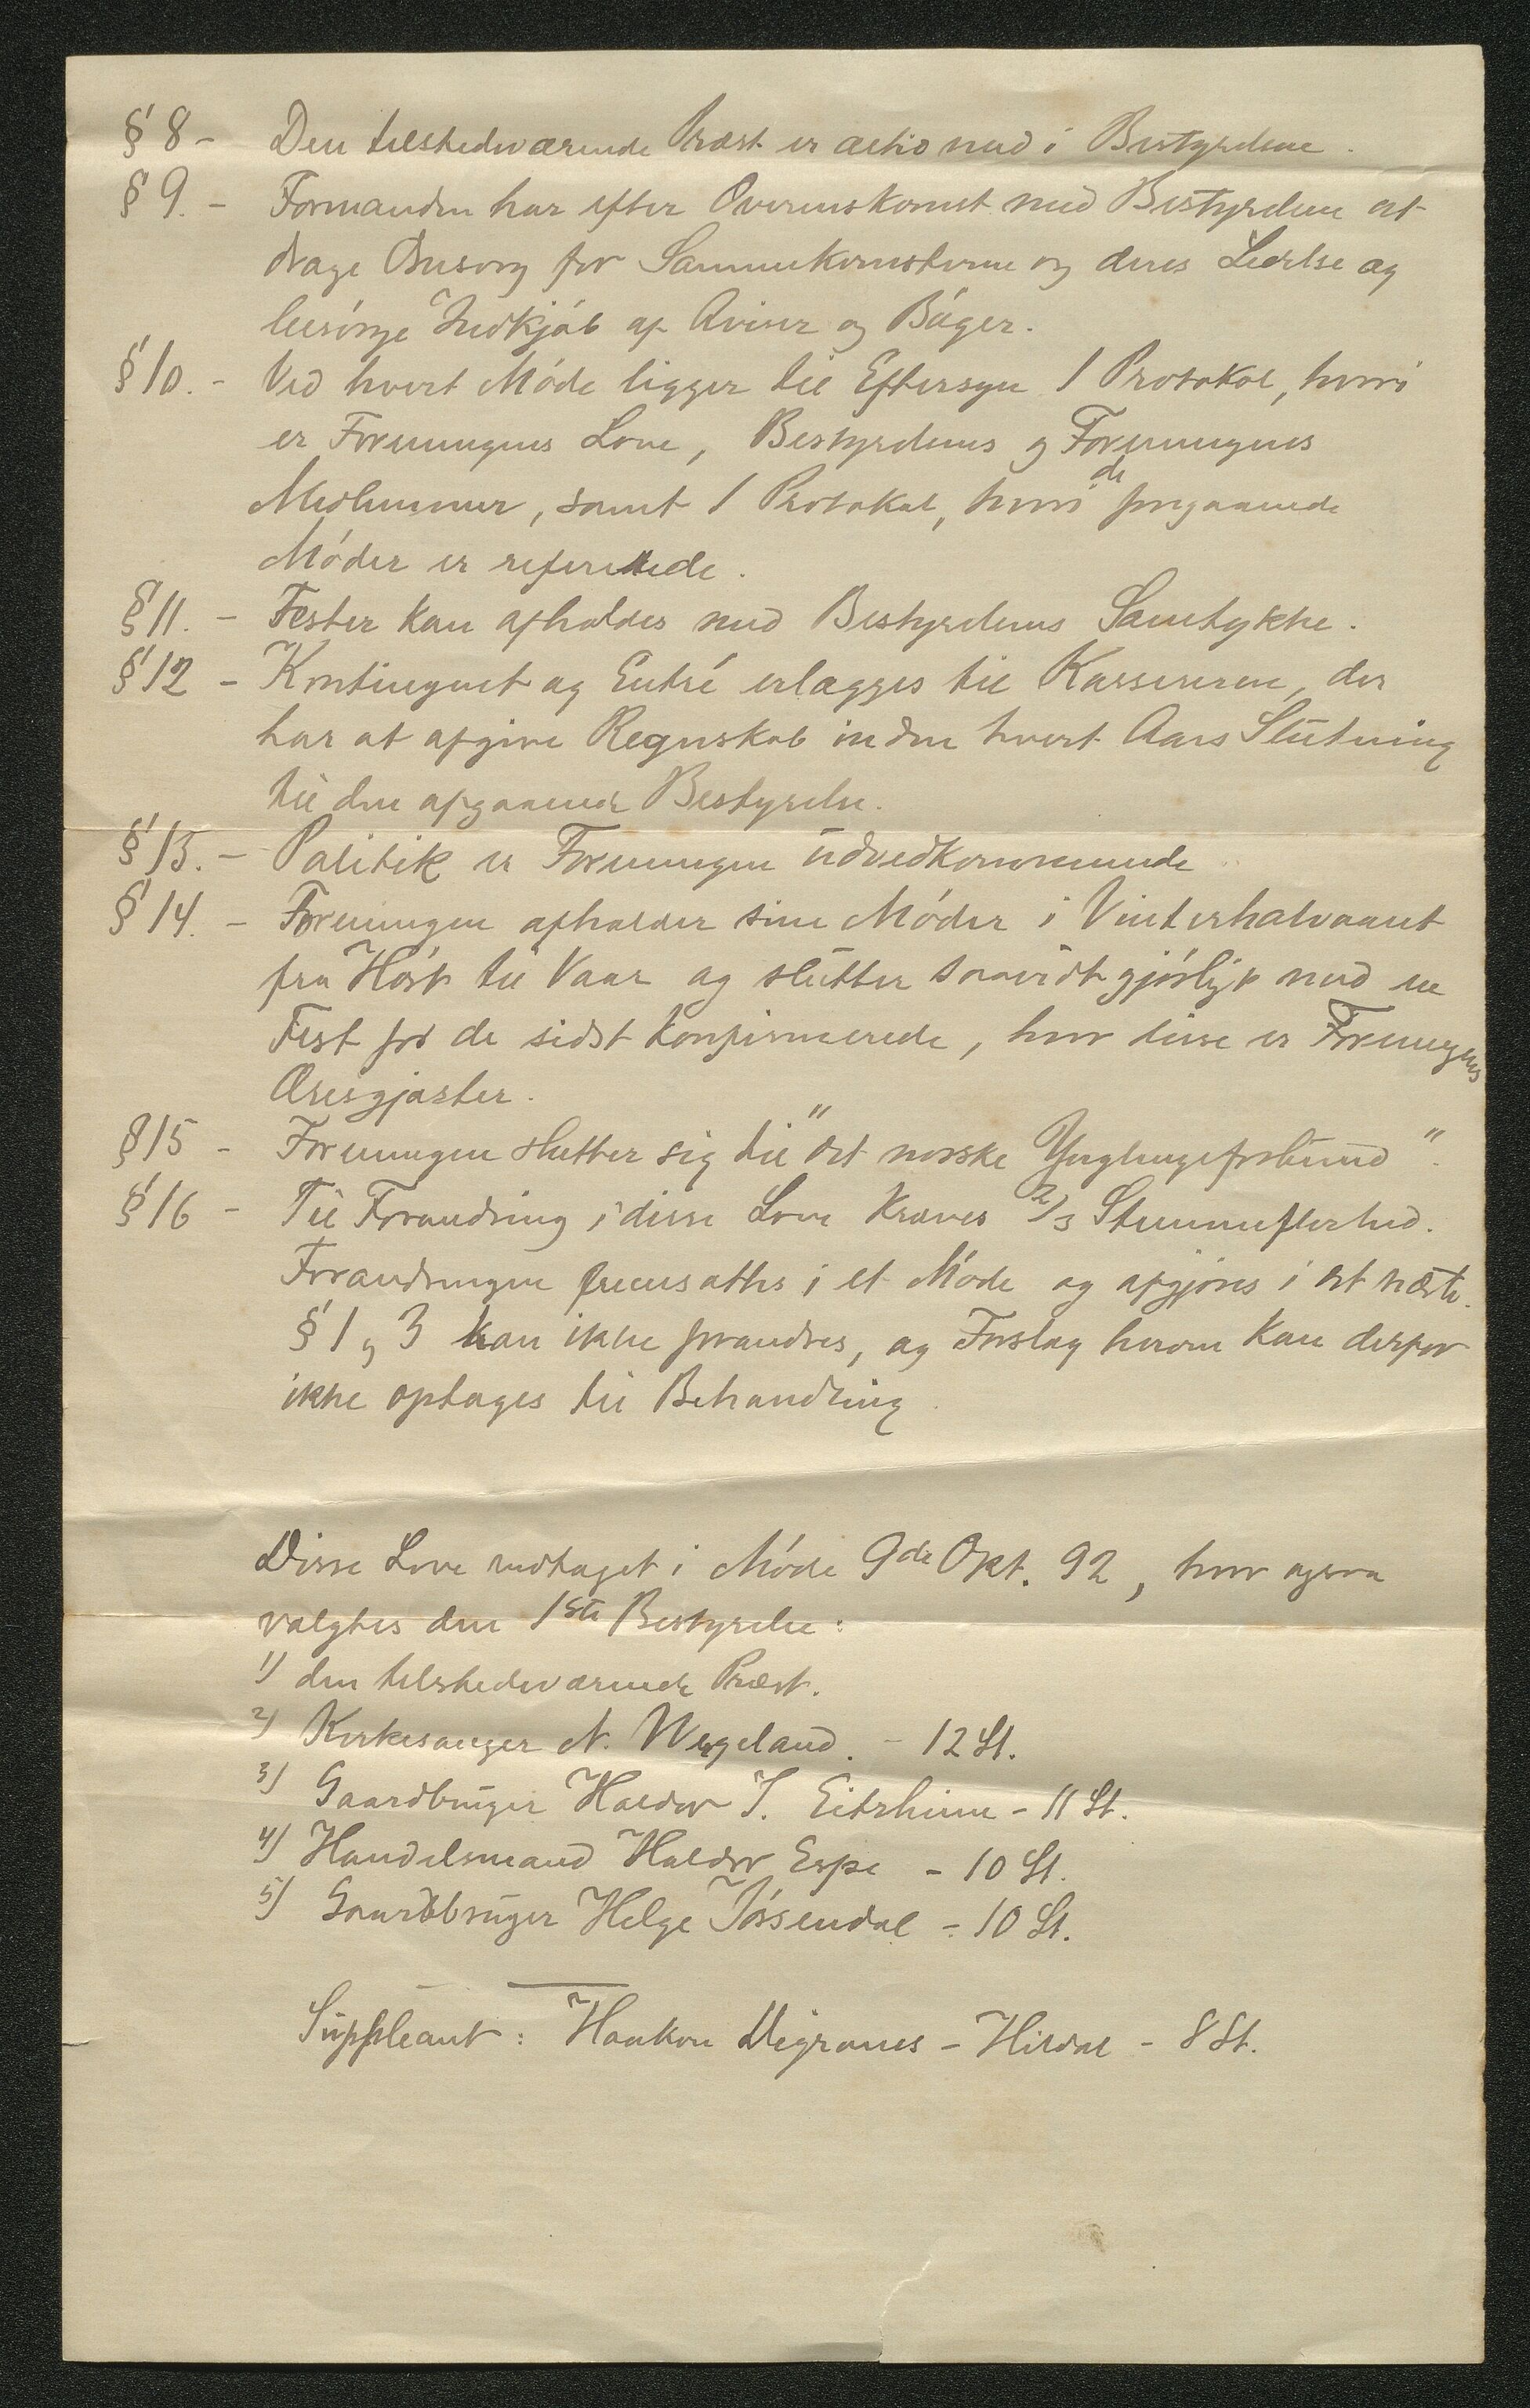 § 8 - Den tilstedeværende Præst er altid med i Bestyrelsen.
§ 9. - Formanden har efter Overenskomst med Bestyrelsen at
drage Omsorg for Sammenkomsterne og deres Ledelse og
besørge Indkjøb af Aviser og Bøger.
§ 10. - Ved hvert Møde ligger til Eftersyn 1 Protokol, hvori
er Foreningens Love, Bestyrelsens og Foreningens
Medlemmer, samt 1 Protokol, hvori de foregaaende
Møder er refererede.
§ 11. - Fester kan afholdes med Bestyrelsens Samtykke.
§ 12 - Kontingent og Entré erlægges til Kassereren, der
har at afgive Regnskab inden hvert Aars Slutning
til den afgaaende Bestyrelse.
§ 13. - Politik er Foreningen uvedkommende
§ 14. - Foreningen afholder sine Møder i Vinterhalvaaret
fra Høst til Vaar og slutter saavidt gjørligt med en
Fest for de sidst konfirmerede, hvor disse er Foreningens
Æresgjæster.
§ 15 - Foreningen slutter sig til "det norske Ynglingeforbund".
§ 16 - Til Forandring i disse Love kræves 2/3 Stemmeflerhed.
Forandringen fremsættes i et Møde og afgjøres i det næste.
§ 1 og 3 kan ikke forandres, og Forslag herom kan derfor
ikke optages til Behandling.
Disse Love vedtaget i Møde 9de Okt. 92, hvor ogsaa
valgtes den 1ste Bestyrelse:
1) den tilstedeværende Præst.
2) Kirkesanger N. Wergeland. - 12 St.
3) Gaardbruger Haldor J. Eitrheim - 11 St.
4) Handelsmand Haldor Espe - 10 St.
5) Gaardbruger Helge Jøsendal - 10 St.
Suppleant: Haakon Digranes - Hildal - 8 St.